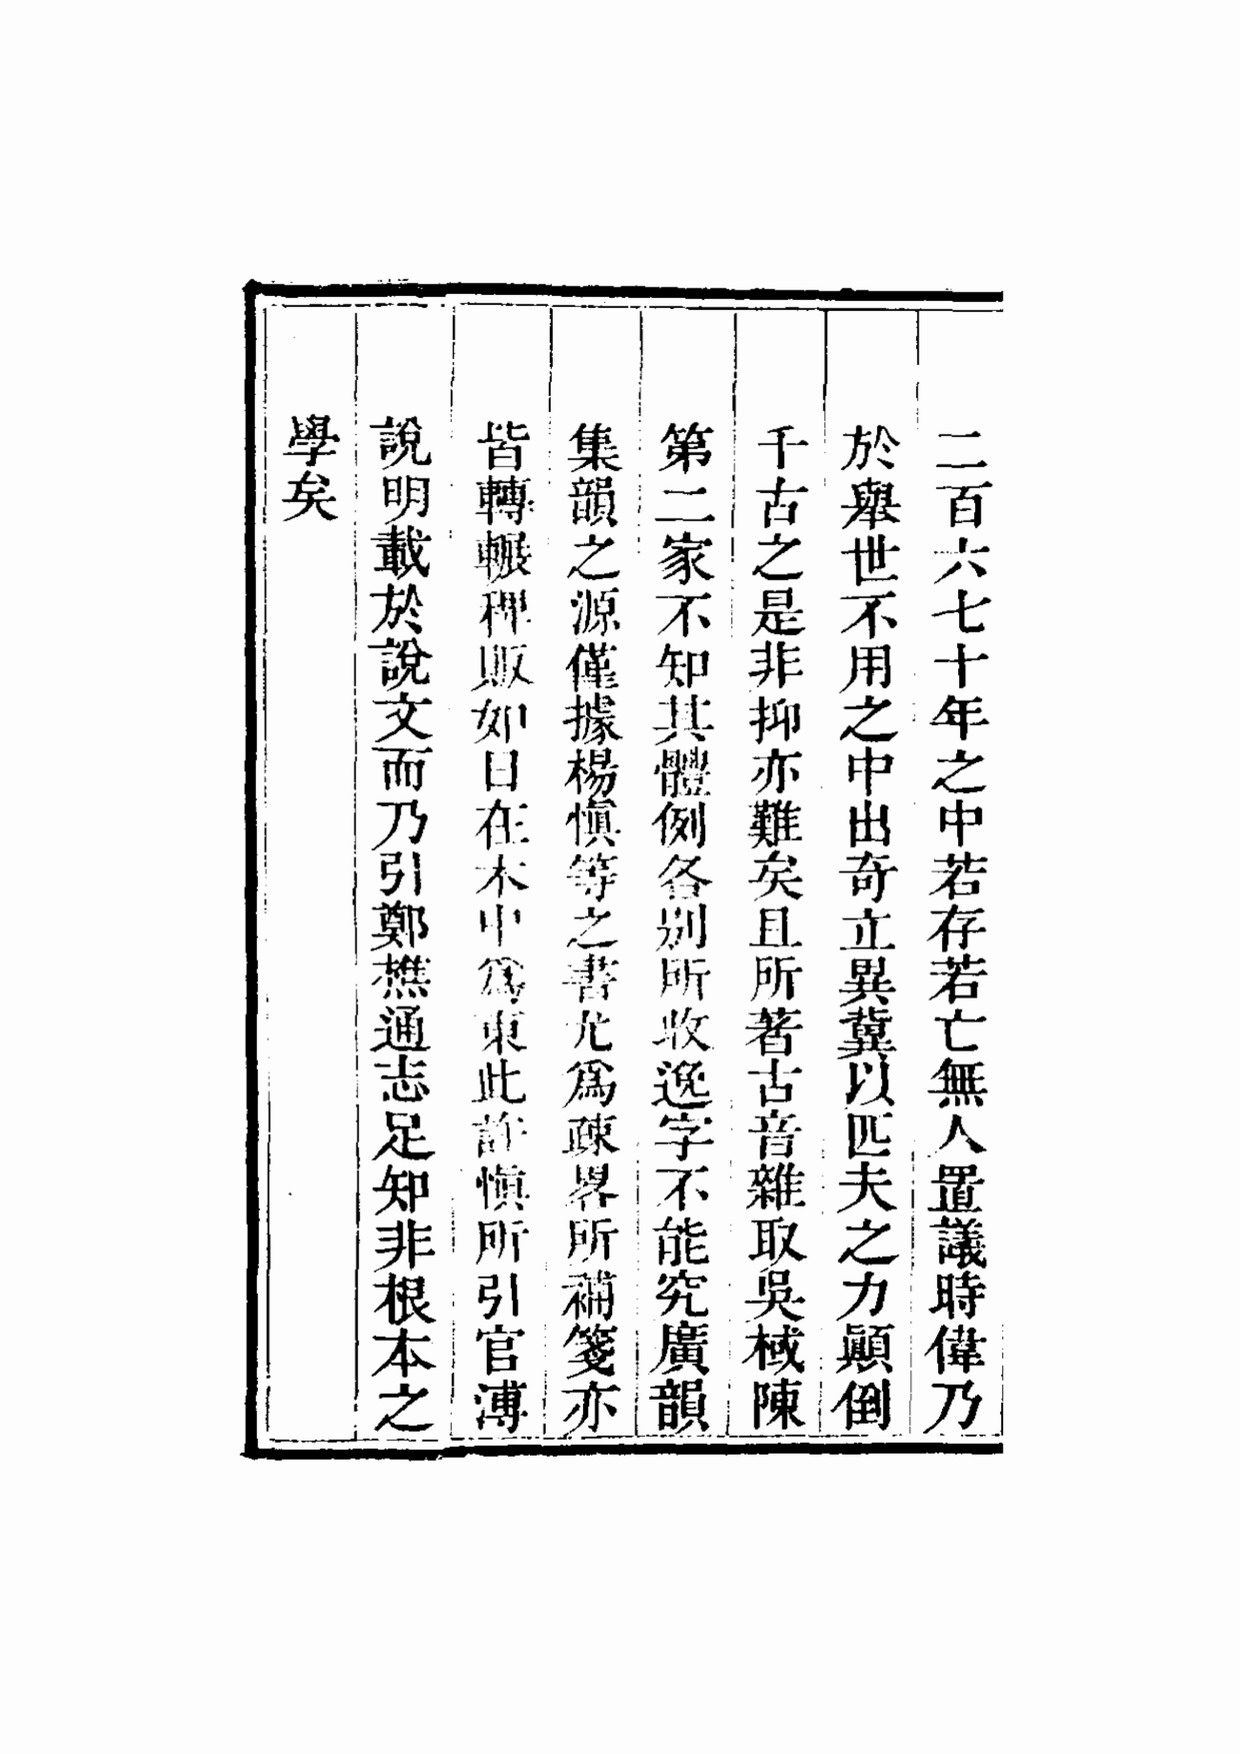 二百六七十年之中若存若亡無人置議時偉乃
於舉世不用之中出奇立異冀以匹夫之力顚倒
千古之是非抑亦難矣且所著古音雜取吳棫陳
第二家不知其體例各別所收逸字不能究廣韻
集韻之源僅據楊愼等之書尤爲疎畧所補箋亦
皆轉輾稗販如日在木中爲東此許愼所引官溥
說明載於說文而乃引鄭樵通志足知非根本之
學矣